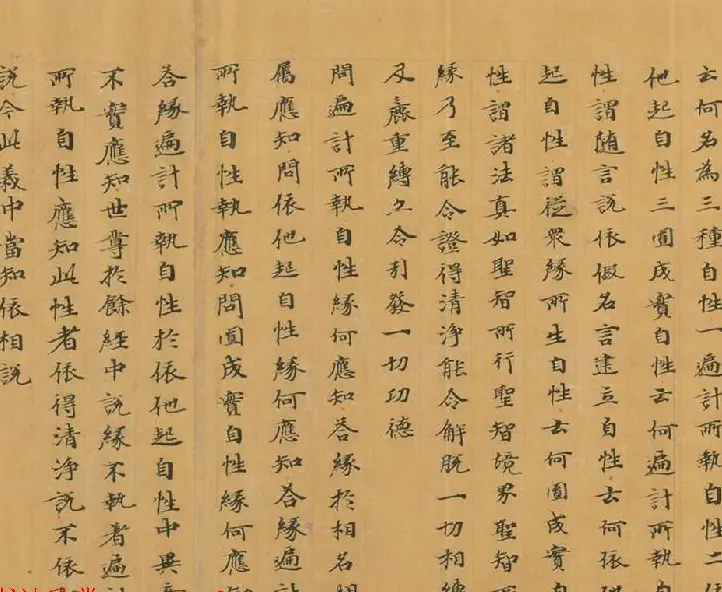 云何名為三種自性一遍計所執自性二依
他起自性三圓成實自性云何遍計所執自
性謂随言說依假名言建立自性云何依他
起自性謂從衆緣所生自性云何圓成實自
性謂諸法真如聖智所行聖智境界聖智所
緣乃至能令證得清淨能令解脫一切相縛
及麁重縛亦令引發一切功德
問遍計所執自性緣何應知荅緣於相名相
属應知問依他起自性緣何應知荅緣遍計
所執自性執應知問圓成實自性緣何應知
荅緣遍計所執自性於依他起自性中畢
不實應知世尊於餘經中說緣不執著遍計
所執自性應知此性者依得清淨說不依
說今此義中當知依相說